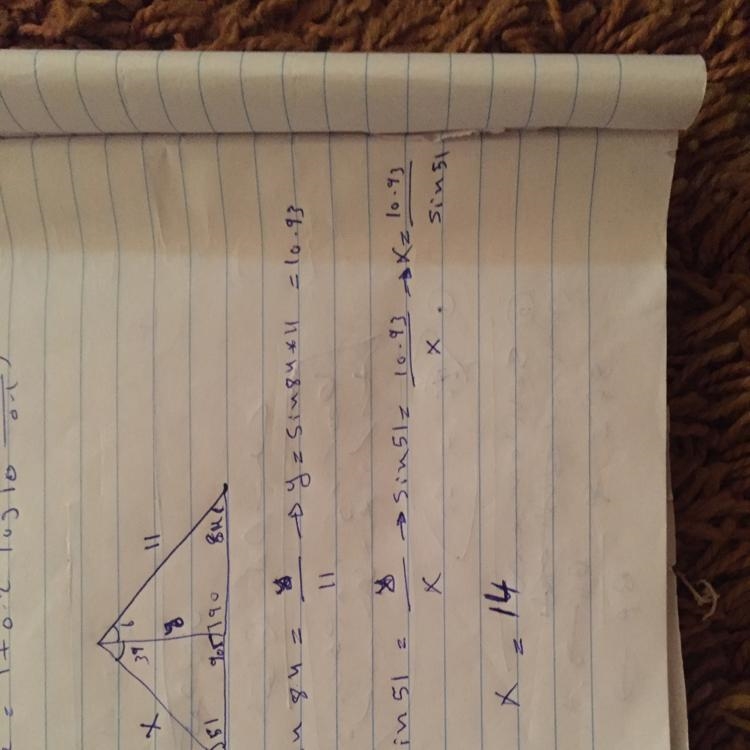 = 1 + 0.2 log 10
x
39
y
11
51
90
90
84
in 84 = y/11 → y = sin 84 * 11 = 10.93
in 51 = y/x → sin 51 = 10.93/x → x = 10.93/sin 51
x = 14